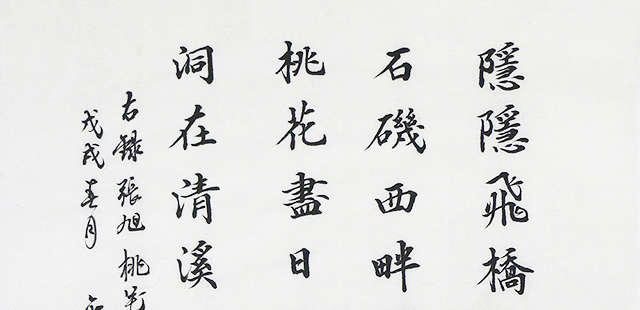 隱隱飛橋
石磯西畔
桃花盡日
洞在清溪
右錄張旭桃花
戊戌春月